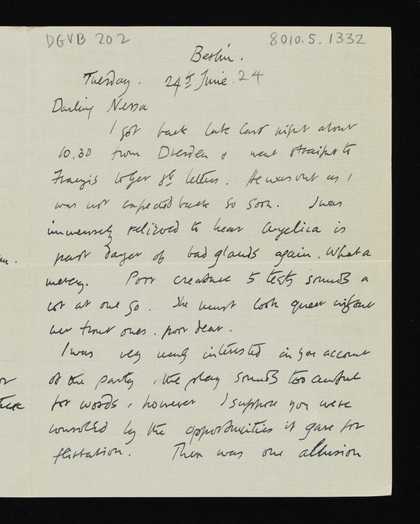 DGVB 202
8010.5.1332
Berlin.
Tuesday. 24th June. 24
Darling Nessa
I got back late last night about
10.30 from Dresden & went straight to
Francis to get yr letters. He was out as I
was not expected back so soon. I was
immensely relieved to hear Angelica is
past danger of bad glands again. What a
mercy. Poor creature 5 teeth sounds a
lot at one go. She must look queer without
her front ones, poor dear.
I was very much interested in your account
of the party, the play sounds too awful
for words, however I suppose you were
consoled by the opportunities it gave for
flirtation. There was one allusion